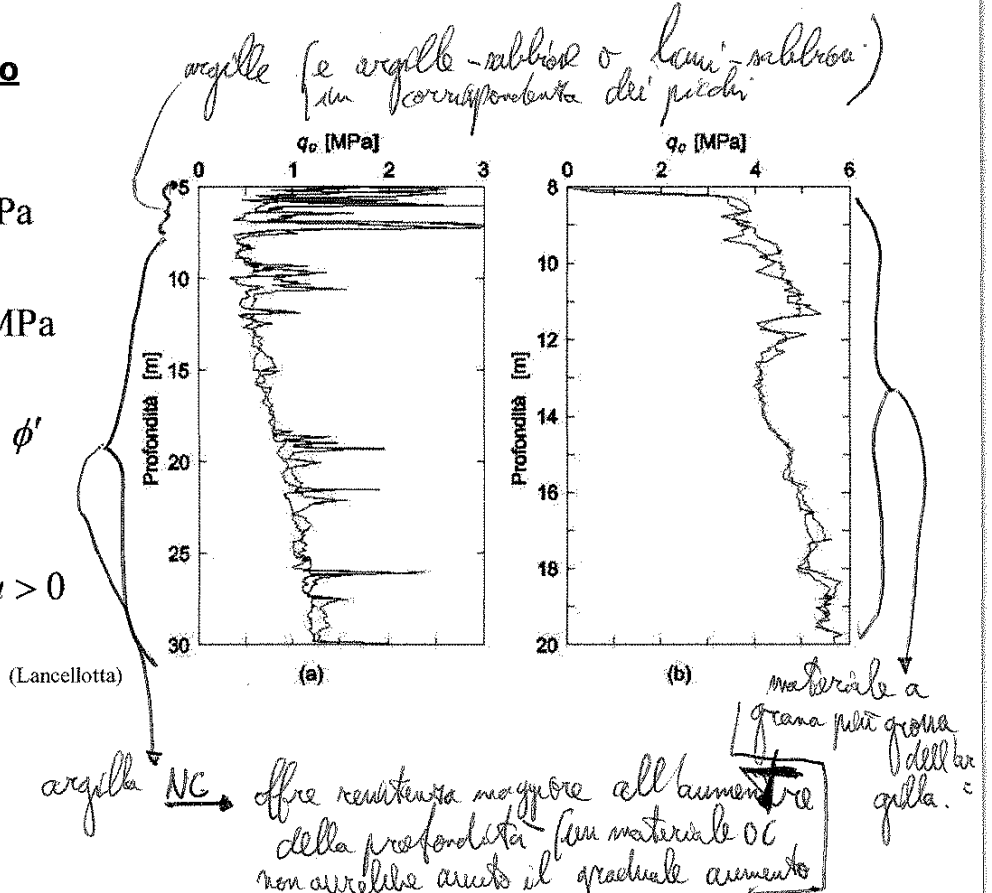 o
argille (e argille-sabbiose o limi-sabbiosi)
in corrispondenza dei picchi
Pa
MPa
ϕ′
u > 0
(Lancellotta)
qc [MPa]
0 1 2 3
5
10
15
20
25
30
Profondità [m]
(a)
qc [MPa]
0 2 4 6
8
10
12
14
16
18
20
Profondità [m]
(b)
materiale a
grana più grossa
dell'ar
gilla.
argilla NC offre resistenza maggiore all'aumentare
della profondità (un materiale OC
non avrebbe avuto il graduale aumento